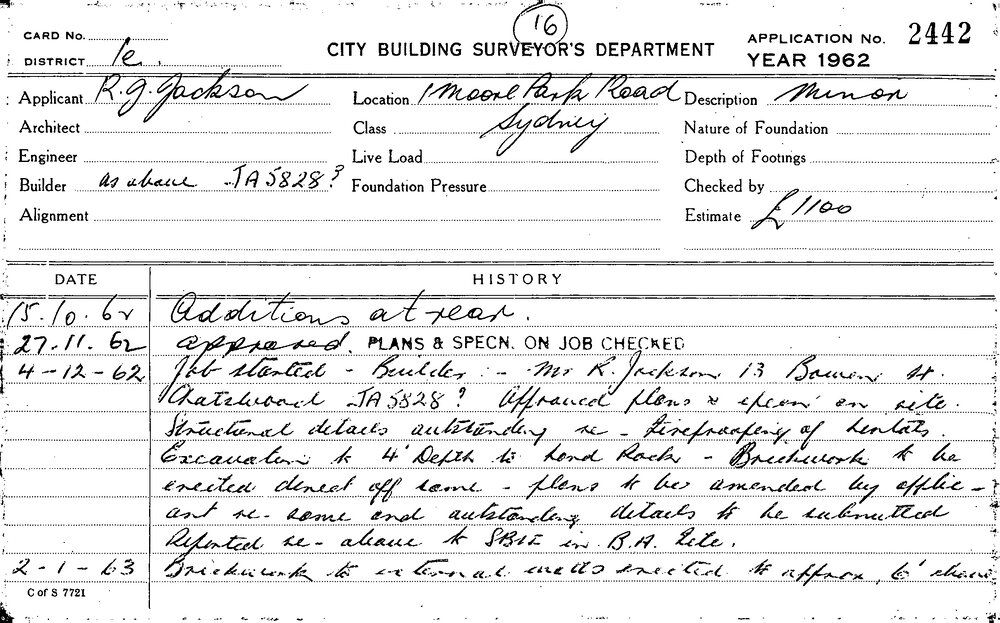 16
CARD No.
DISTRICT 1e.
CITY BUILDING SURVEYOR'S DEPARTMENT
APPLICATION No. 2442
YEAR 1962
Applicant R.J. Jackson Location 1 Moore Park Road Description Minor
Architect Class Sydney Nature of Foundation
Engineer Live Load Depth of Footings
Builder as above JA5828? Foundation Pressure Checked by
Alignment Estimate £1100
DATE HISTORY
15.10.62 Additions at rear.
27.11.62 approved. PLANS & SPECN. ON JOB CHECKED
4-12-62 Job started - Builder :- Mr R. Jackson 13 Bowen St.
Chatswood JA5828? Approved plans & specn on site.
Structural details outstanding re- Fireproofing of lintols
Excavation to 4' Depth to hard Rock - Brickwork to be
erected direct off same - plans to be amended by applic-
ant re- same and outstanding details to be submitted
Reported re- above to in B.A. Lite.
2-1-63 Brickwork to external walls erected to approx, 6' above
C of S 7721